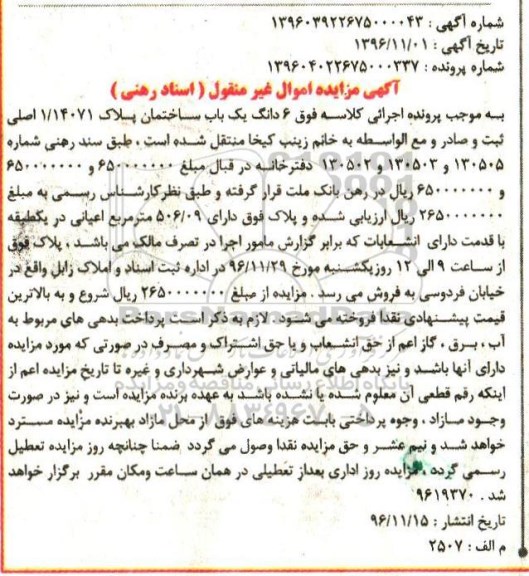 شماره آگهی : ۱۳۹۶۰۳۹۲۲۶۷۵۰۰۰۰۴۳
تاریخ آگهی : ۱۳۹۶/۱۱/۰۱
شماره پرونده : ۱۳۹۶۰۴۰۲۲۶۷۵۰۰۰۳۳۷
آگهی مزایده اموال غیر منقول ( اسناد رهنی )
به موجب پرونده اجرائی کلاسه فوق ۶ دانگ یک باب ساختمان پلاک ۱/۱۴۰۷۱ اصلی
ثبت و صادر و مع الواسطه به خانم زینب کیخا منتقل شده است ، طبق سند رهنی شماره
۱۳۰۵۰۵ و ۱۳۰۵۰۳ و ۱۳۰۵۰۲ دفترخانه در قبال مبلغ ۶۵۰۰۰۰۰۰۰ و ۶۵۰۰۰۰۰۰۰
و ۶۵۰۰۰۰۰۰۰ ریال در رهن بانک ملت قرار گرفته و طبق نظرکارشناس رسمی به مبلغ
۲۶۵۰۰۰۰۰۰۰ ریال ارزیابی شده و پلاک فوق دارای ۵۰۶/۰۹ مترمربع اعیانی در یکطبقه
با قدمت دارای انشعابات که برابر گزارش مامور اجرا در تصرف مالک می باشد ، پلاک فوق
از ساعت ۹ الی ۱۲ روز یکشنبه مورخ ۹۶/۱۱/۲۹ در اداره ثبت اسناد و املاک زابل واقع در
خیابان فردوسی به فروش می رسد . مزایده از مبلغ ۲۶۵۰۰۰۰۰۰۰ ریال شروع و به بالاترین
قیمت پیشنهادی نقدا فروخته می شود . لازم به ذکر است پرداخت بدهی های مربوط به
آب ، برق ، گاز اعم از حق انشعاب و یا حق اشتراک و مصرف در صورتی که مورد مزایده
دارای آنها باشد و نیز بدهی های مالیاتی و عوارض شهرداری و غیره تا تاریخ مزایده اعم از
اینکه رقم قطعی آن معلوم شده یا نشده باشد به عهده برنده مزایده است و نیز در صورت
وجود مازاد ، وجوه پرداختی بابت هزینه های فوق از محل مازاد بهبرنده مزایده مسترد
خواهد شد و نیم عشر و حق مزایده نقدا وصول می گردد ضمنا چنانچه روز مزایده تعطیل
رسمی گردد ، مزایده روز اداری بعداز تعطیلی در همان ساعت ومکان مقرر برگزار خواهد
شد . ۹۶۱۹۳۷۰
تاریخ انتشار : ۹۶/۱۱/۱۵
م الف : ۲۵۰۷
ParsNamadData
پایگاه اطلاع رسانی مناقصه و مزایده
۰۲۱-۸۸۳۴۹۶۷۰-۵